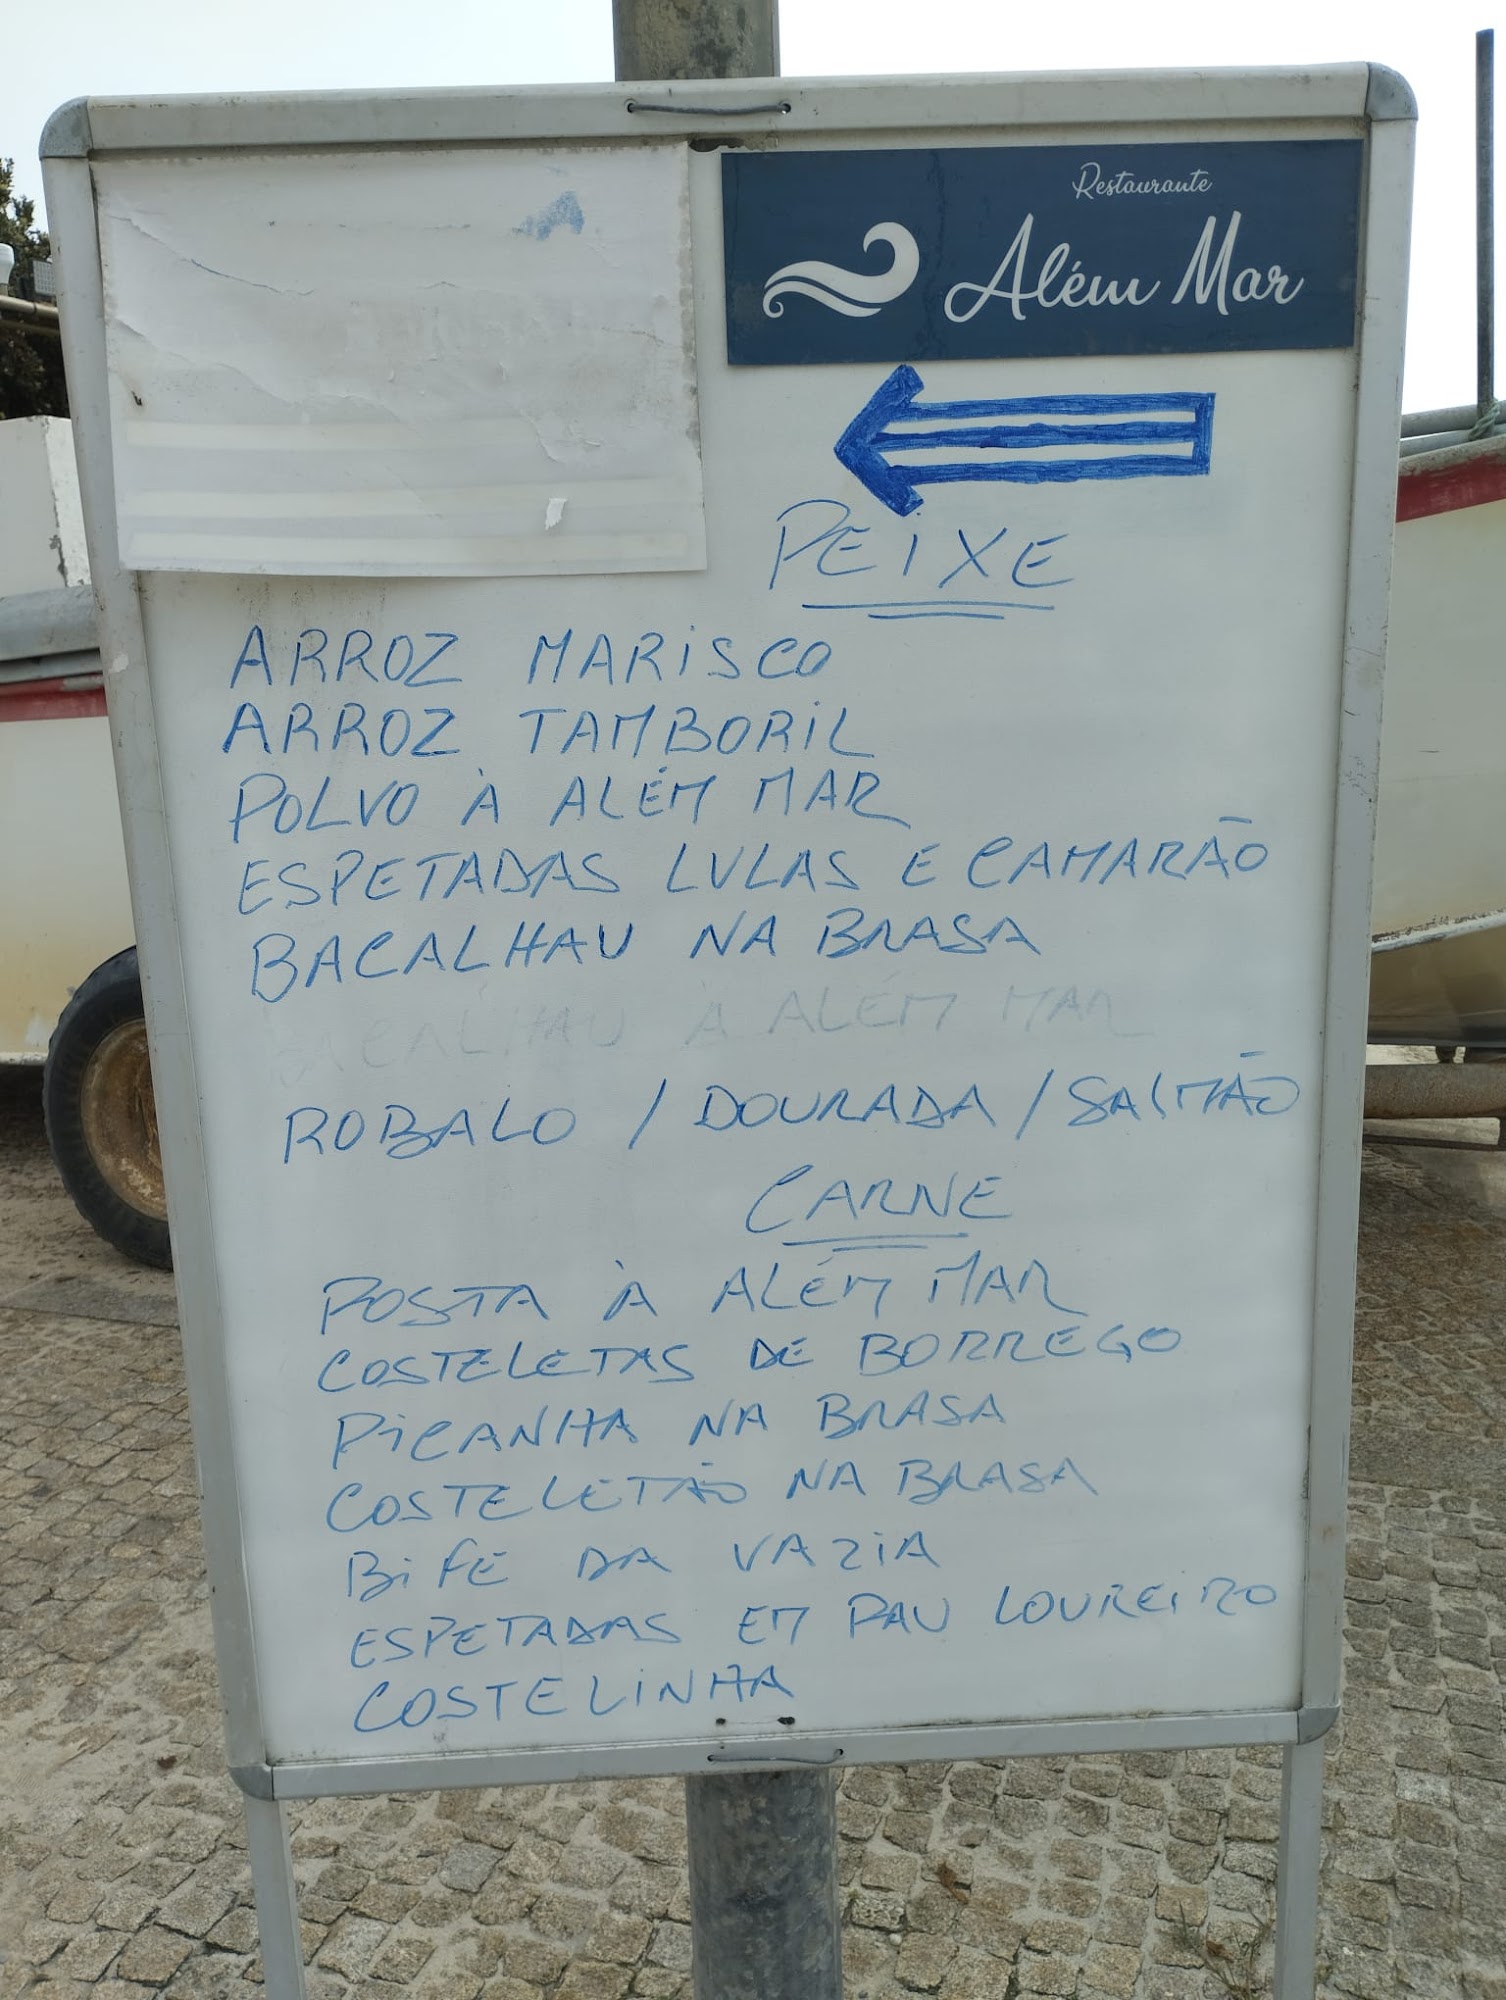 Restaurante
Além Mar
PEiXE
ARROZ MARiSCO
ARROZ TAMBORiL
POLVO À ALÉM MAR
ESPETADAS LULAS E CAMARÃO
BACALHAU NA BRASA
BACALHAU À ALÉM MAR
ROBALO / DOURADA / SALMÃO
CARNE
POSTA À ALÉM MAR
COSTELETAS DE BORREGO
PiCANHA NA BRASA
COSTELETÃO NA BRASA
BiFE DA VAZiA
ESPETADAS EM PAU LOUREiRO
COSTELiNHA